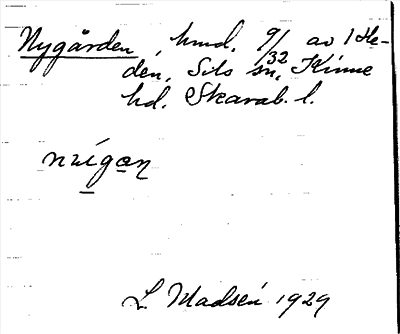 Nygården, hmd. 9/32 av 1 He-
den, Sils sn, Kinne
hd. Skarab. l.
nẁígan
L. Madsén 1929